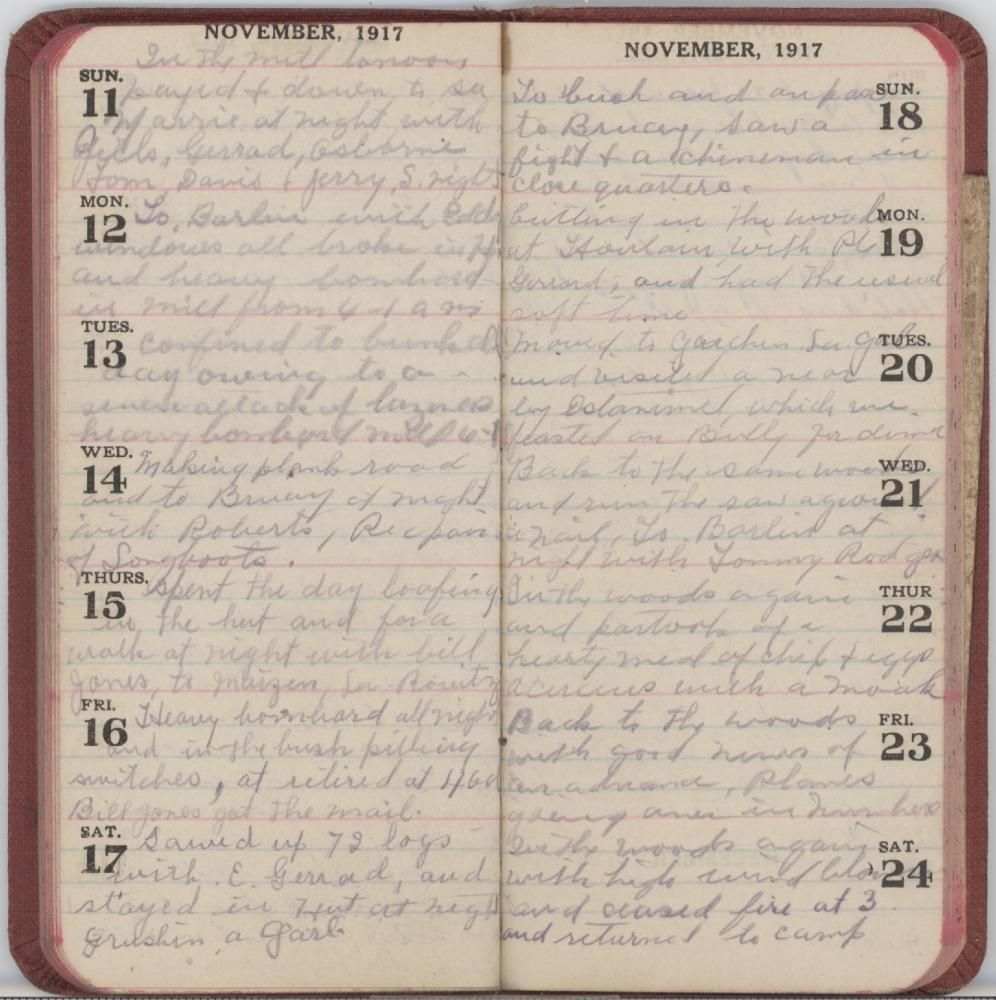 NOVEMBER, 1917
In the mill
SUN.
11
payed & down to
at night with
Gills, Gerrad, Osborne
Tom, Davis & Jerry, S. night
MON.
12
To Barlin with
windows all broke in
and heavy bombard
in mill from 4-1 am
TUES.
13
confined to bunk
day owing to a
severe attack of lazyness
heavy bombard mill 4-1
WED.
14
Making plank road
and to Bruay at night
with Roberts, Recpair
of Longboots.
THURS.
15
Spent the day loafing
in the hut and for a
walk at night with bill
Jones, to Maizen, La
FRI.
16
Heavy bombard all night
and in the bush pilling
switches, at retired at 4
Bill Jones got the mail.
SAT.
17
Sawed up 72 logs
with E. Gerrad, and
stayed in Hut at nigh
a
NOVEMBER, 1917
SUN.
18
To bush and on pass
to Bruay, saw a
fight & a chineman in
close quarters.
MON.
19
Cutting in the woods
at Houdain with
Gerrard; and had the usual
soft time
TUES.
20
Moved to Gauchin La
and visited a near
by Estaminet, which we
feasted on Bully for dinner
WED.
21
Back to the same woods
and run the saw
a nail, To Barlin at
night with Tommy Rodgers
THUR
22
In the woods again
and partook of a
hearty meal of chip & eggs
a circus with a
FRI.
23
Back to the woods
with good news of
an advance, Planes
going over in numbers
SAT.
24
In the woods again
with high wind
and ceased fire at 3
and returned to camp